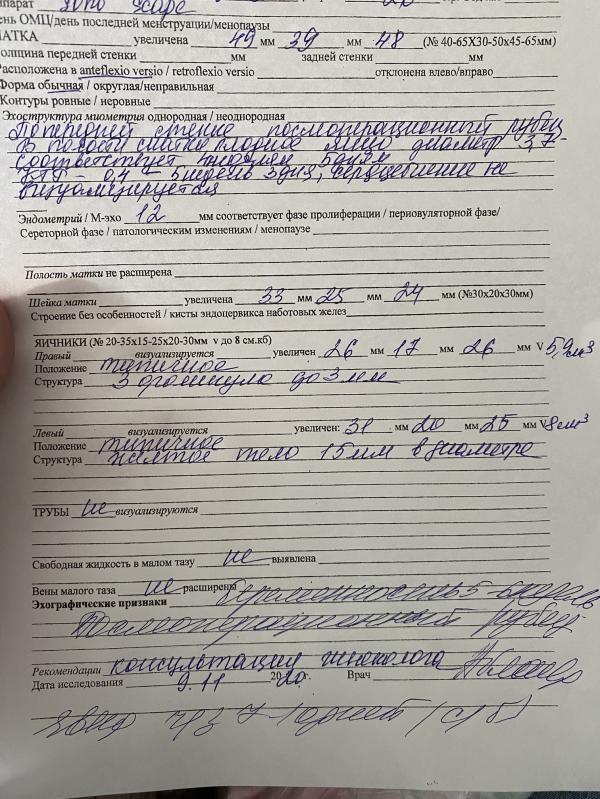 парат Sono scape
ень ОМЦ/день последней менструации/менопаузы
МАТКА увеличена 49 мм 39 мм 48 (№ 40-65Х30-50х45-65мм)
олщина передней стенки мм задней стенки мм
Расположена в anteflexio versio / retroflexio versio отклонена влево/вправо
Форма обычная / округлая/неправильная
Контуры ровные / неровные
Эхоструктура миометрия однородная / неоднородная
По передней стенке послеоперационный рубец
В полости матки плодное яйцо диаметр 3,7-
соответствует 5 дням
КТР - 0,4 - 5 недель 3 дня, сердцебиение не
визуализируется
Эндометрий / М-эхо 12 мм соответствует фазе пролиферации / периовуляторной фазе/
Сереторной фазе / патологическим изменениям / менопаузе
Полость матки не расширена
Шейка матки увеличена 33 мм 25 мм 24 мм (№30х20х30мм)
Строение без особенностей / кисты эндоцервикса наботовых желез
ЯИЧНИКИ (№ 20-35х15-25х20-30мм v до 8 см.кб)
Правый визуализируется увеличен 26 мм 17 мм 26 мм V 5,9 см³
Положение типичное
Структура до 3 мм
Левый визуализируется увеличен: 31 мм 20 мм 25 мм V 8 см³
Положение типичное
Структура желтое тело 15 мм в диаметре
ТРУБЫ не визуализируются
Свободная жидкость в малом тазу не выявлена
Вены малого таза не расширены
Эхографические признаки беременность 5-6 недель
Послеоперационный рубец
Рекомендации консультация гинеколога
Дата исследования 9.11 2020г. Врач
7-10 дней